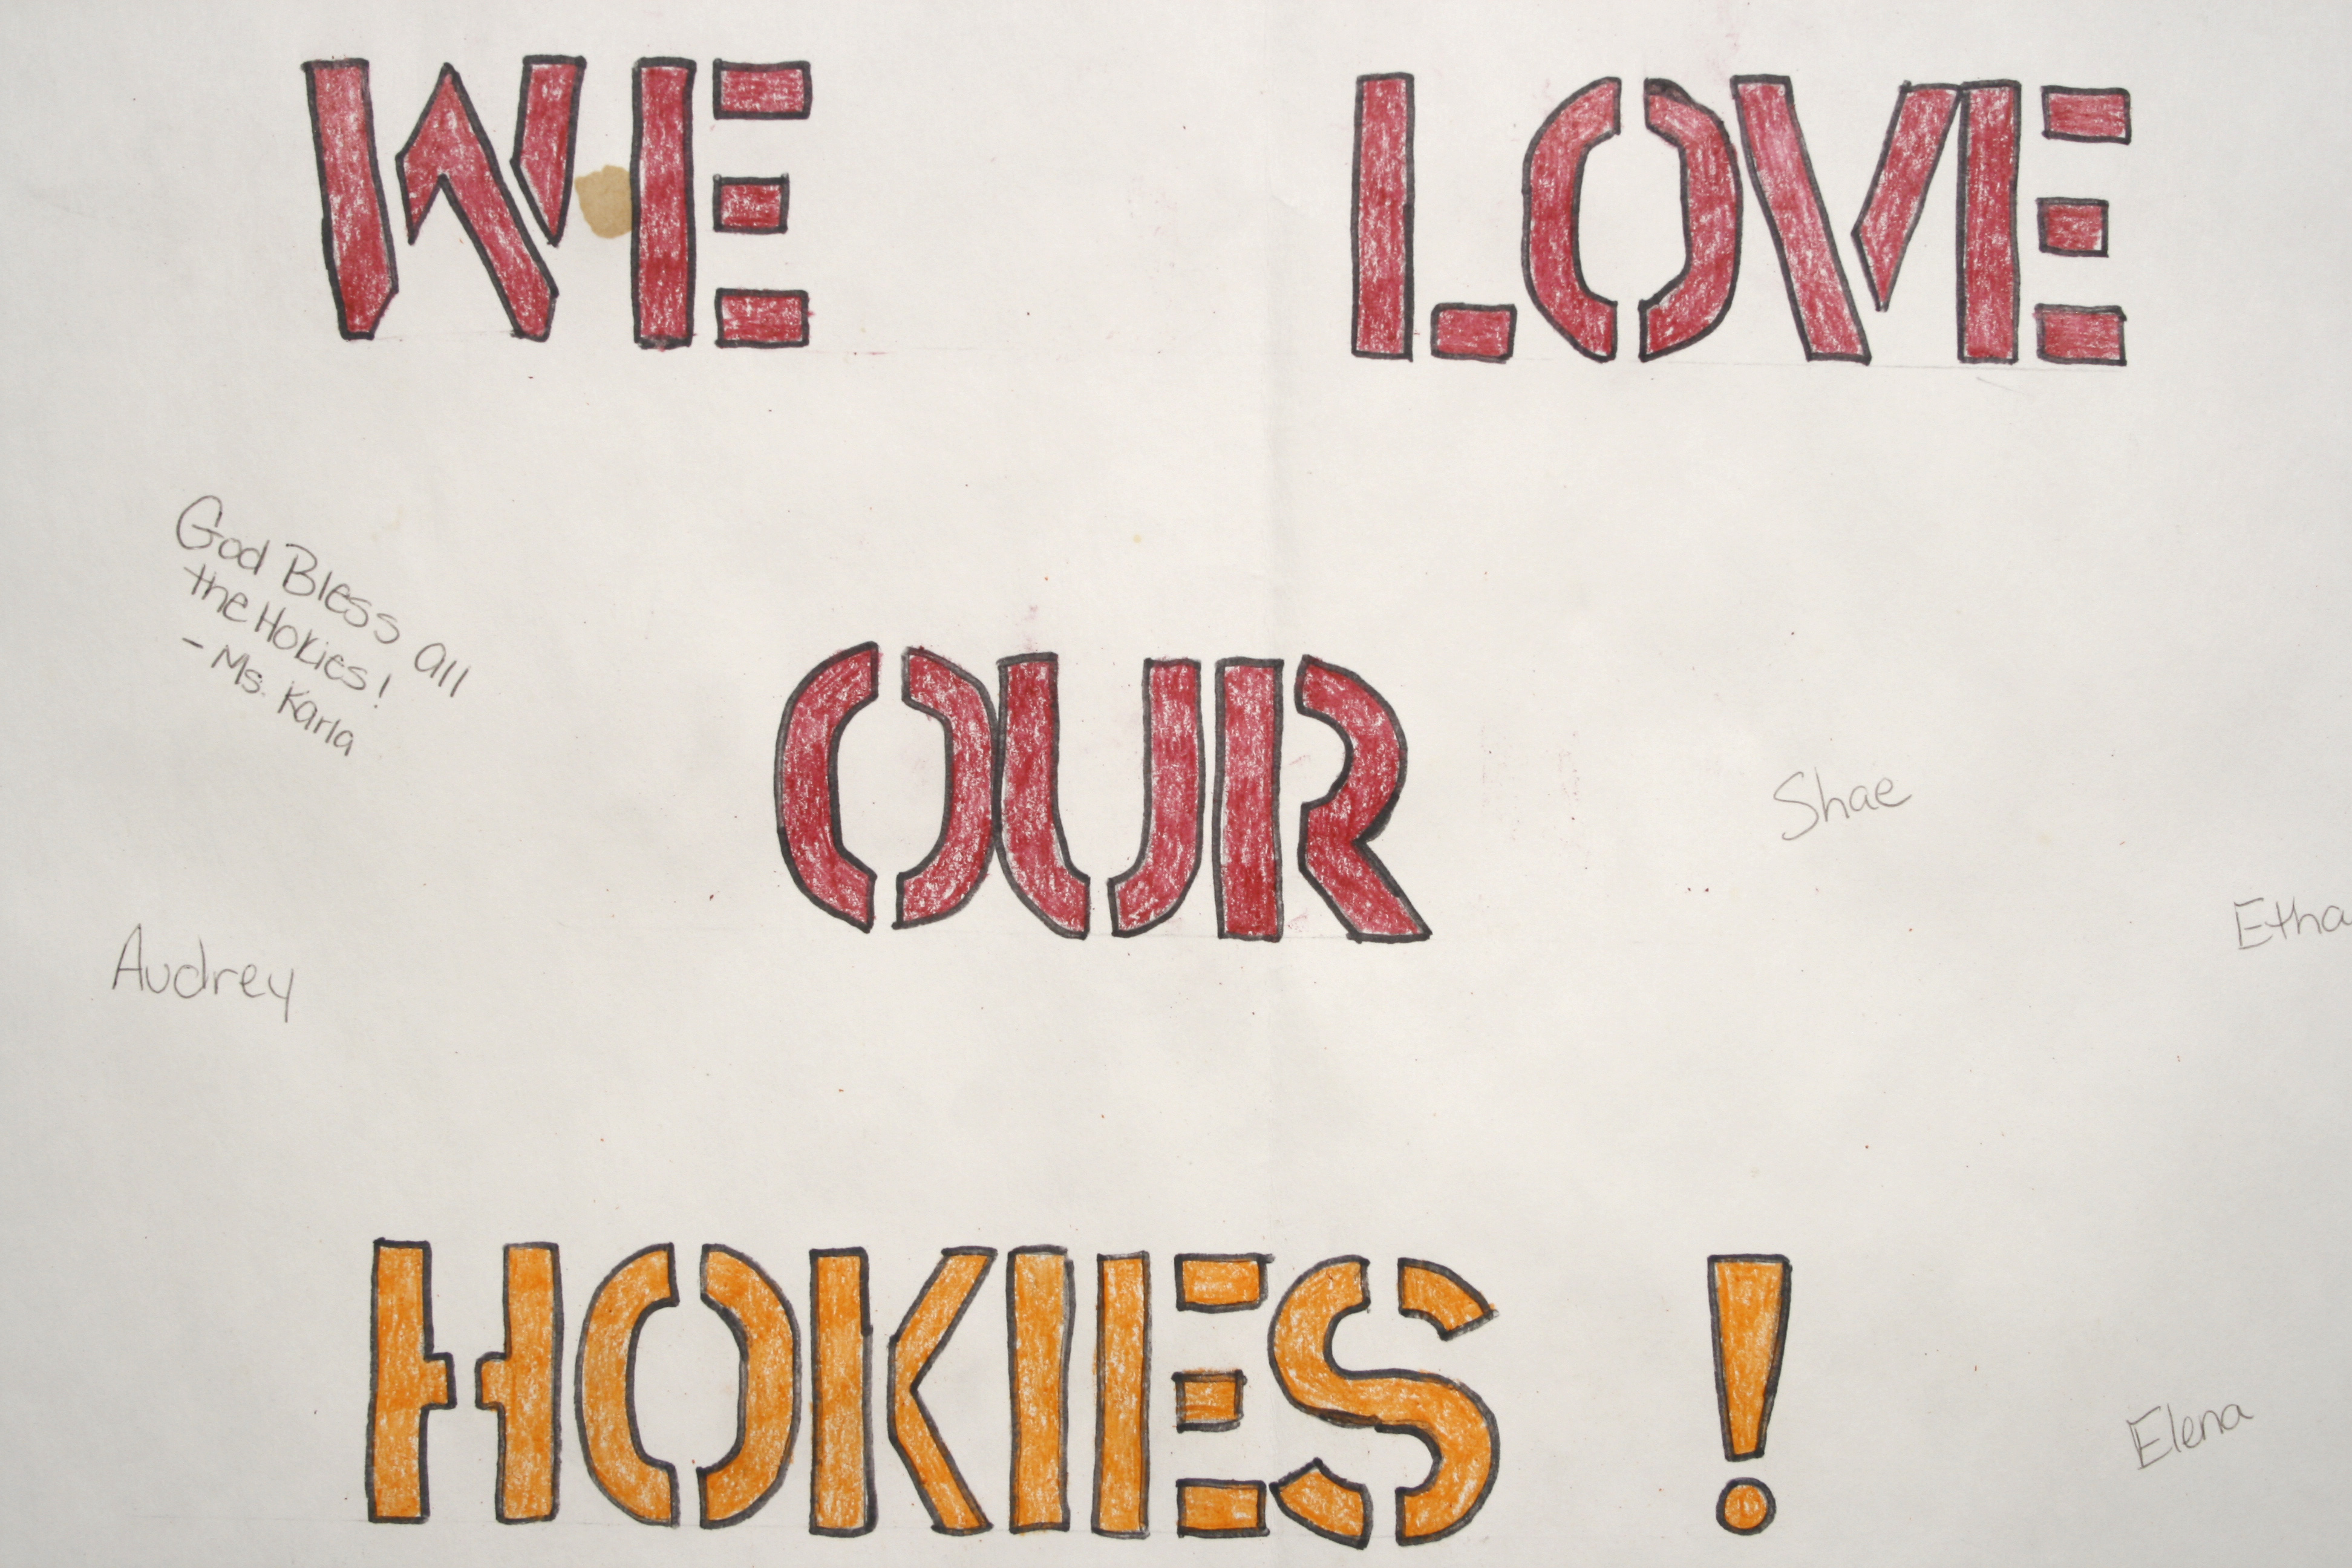 WE LOVE
God Bless all
the Hokies!
- Ms. Karla
OUR
Shae
Etha
Audrey
HOKIES !
Elena